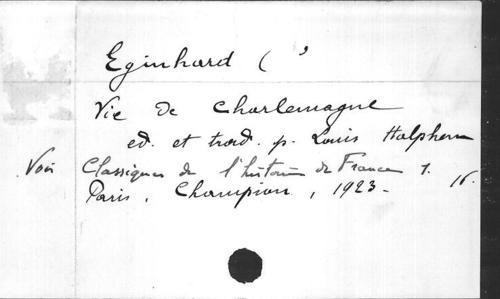 Eginhard ( ’
Vie de Charlemagne
ed. et trad. p. Louis Halphen
Voir Classiques de l'histoire de France 1.
Paris, Champion, 1923. 16.